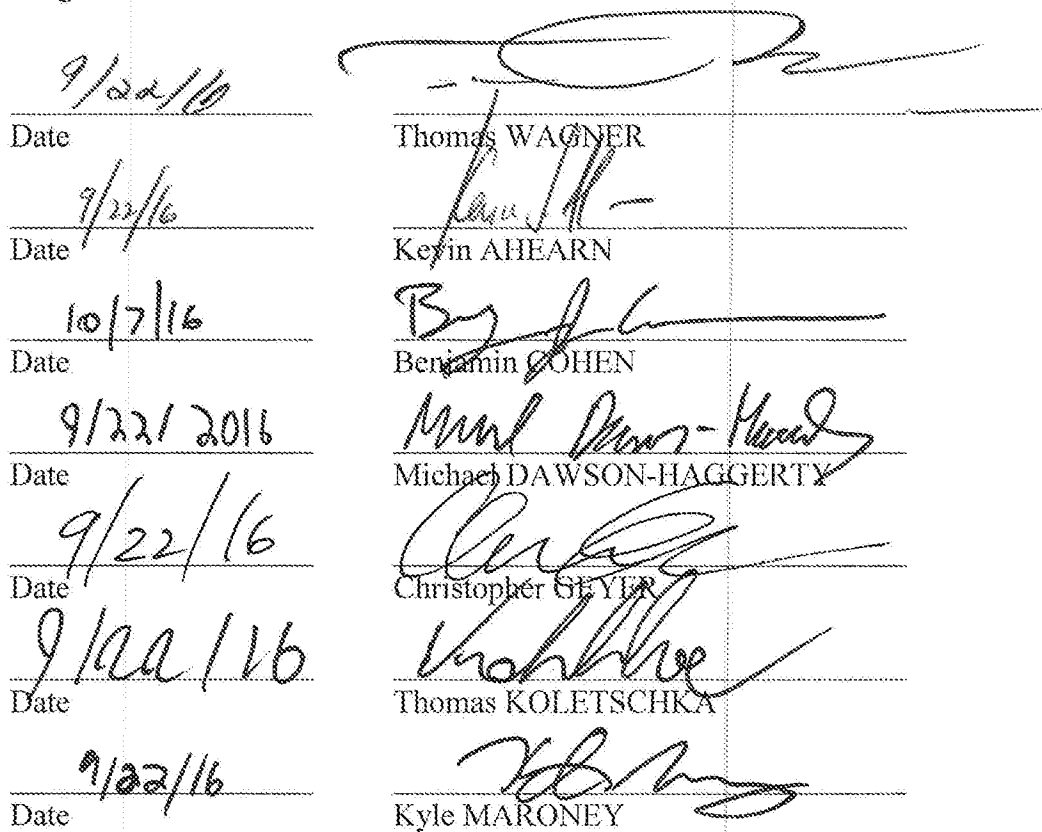 9/22/16
Date Thomas WAGNER
9/22/16
Date Kevin AHEARN
10/7/16
Date Benjamin COHEN
9/22/2016
Date Michael DAWSON-HAGGERTY
9/22/16
Date Christopher GEYER
9/22/16
Date Thomas KOLETSCHKA
9/22/16
Date Kyle MARONEY